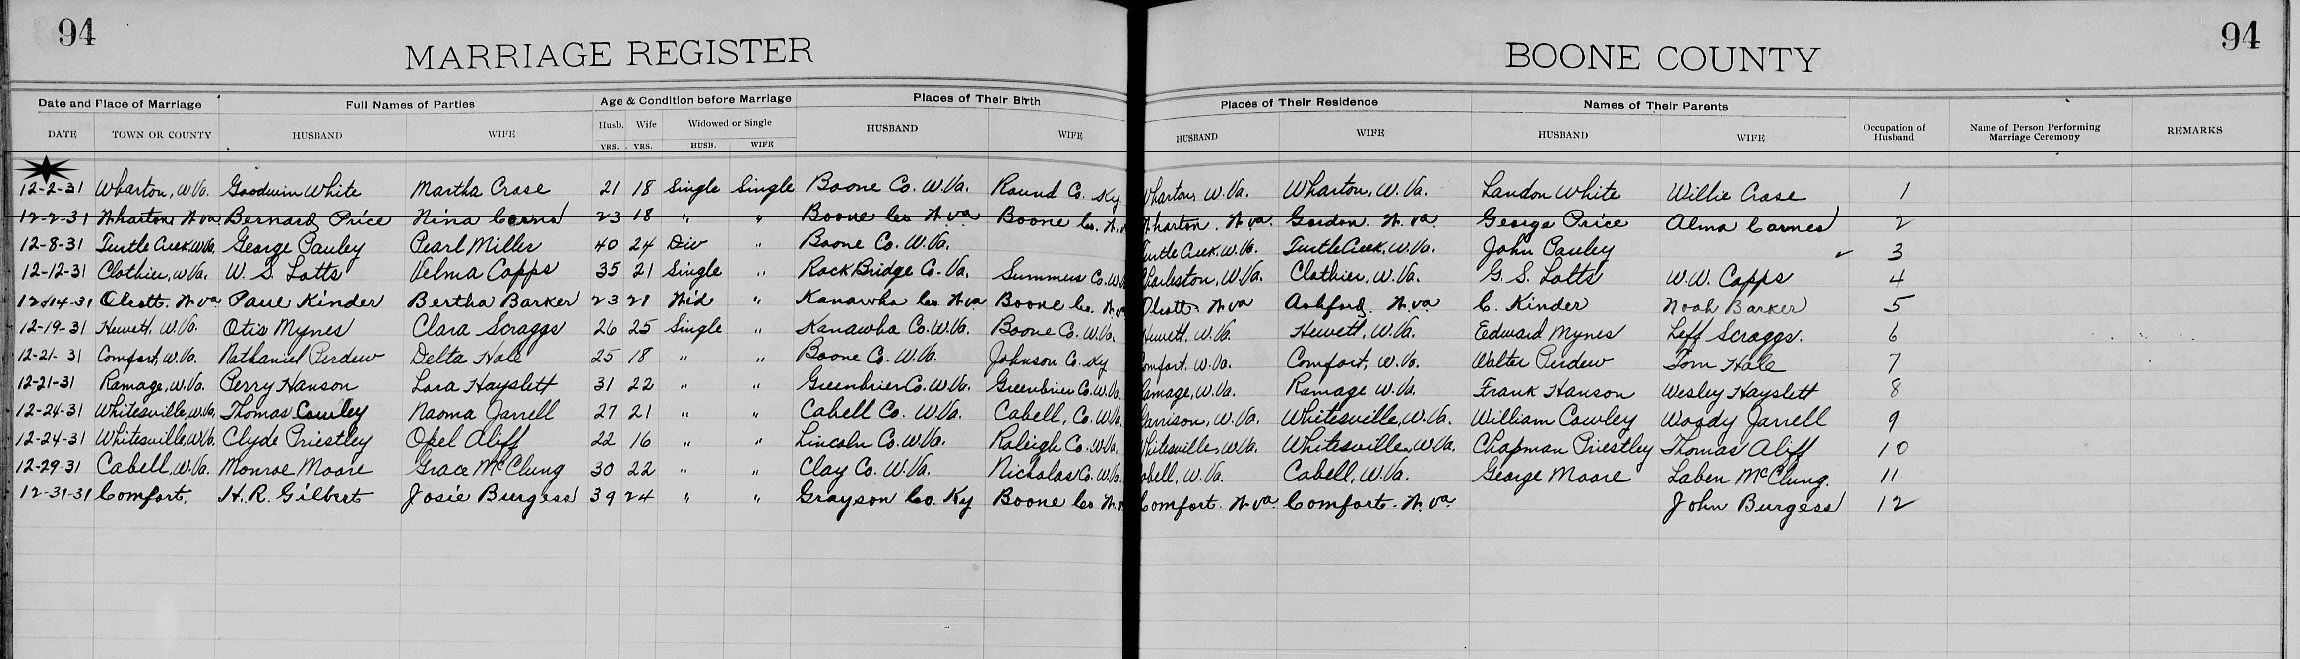 94 94
MARRIAGE REGISTER BOONE COUNTY
Date and Place of Marriage Full Names of Parties Age & Condition before Marriage Places of Their Birth Places of Their Residence Names of Their Parents
DATE TOWN OR COUNTY HUSBAND WIFE Husb. Wife Widowed or Single HUSBAND WIFE HUSBAND WIFE HUSBAND WIFE Occupation of Husband Name of Person Performing Marriage Ceremony REMARKS
YRS. YRS. HUSB. WIFE
12-2-31 Wharton, W.Va. Goodwin White Martha Crase 21 18 Single Single Boone Co. W.Va. Round Co. Ky Wharton, W.Va. Wharton, W.Va. Landon White Willie Crase 1
12-2-31 Wharton, W Va Bernard Price Nina 23 18 " " Boone Co W Va Boone Co. W. Wharton. W. Va. Gordon. W. Va George Price Alma 2
12-8-31 Turtle Creek W.Va. George Pauley Pearl Miller 40 24 Div " Boone Co. W.Va. Turtle Creek, W.Va. Turtle Creek, W.Va. John Pauley ✓ 3
12-12-31 Clothier, W.Va. W. S. Lotts Velma Capps 35 21 Single " Rock Bridge Co. Va. Summers Co. W.V Charleston, W.Va. Clothier, W.Va. G. S. Lotts W.W. Capps 4
12-14-31 Olcott. W Va Paul Kinder Bertha Barker 23 21 Wid " Kanawha Co W Va Boone Co. W. Va Olcott. W Va Ashford. W. Va C. Kinder Noah Barker 5
12-19-31 Hewett, W.Va. Otis Mynes Clara Scraggs 26 25 Single " Kanawha Co. W.Va. Boone Co. W.Va. Hewett, W.Va. Hewett, W.Va. Edward Mynes Leff Scraggs. 6
12-21-31 Comfort, W.Va. Nathaniel Perdew Delta Hale 25 18 " " Boone Co. W.Va. Johnson Co. Ky Comfort, W.Va. Comfort, W.Va. Walter Perdew Tom Hale 7
12-21-31 Ramage, W.Va. Perry Hanson Lora Hayslett 31 22 " " Greenbrier Co. W.Va. Greenbrier Co. W.Va. Ramage, W.Va. Ramage W.Va. Frank Hanson Wesley Hayslett 8
12-24-31 Whitesville, W.Va. Thomas Cowley Naoma Jarrell 27 21 " " Cabell Co. W.Va. Cabell, Co. W.Va. Garrison, W.Va. Whitesville, W.Va. William Cowley Woody Jarrell 9
12-24-31 Whitesville W.Va. Clyde Priestley Opel Aliff 22 16 " " Lincoln Co. W.Va. Raleigh Co. W.Va. Whitesville, W.Va. Whitesville, W.Va. Chapman Priestley Thomas Aliff 10
12-29-31 Cabell, W.Va. Monroe Moore Grace McClung 30 22 " " Clay Co. W.Va. Nicholas Co. W.Va. Cabell, W.Va. Cabell, W.Va. George Moore Laben McClung. 11
12-31-31 Comfort. H.R. Gilbert Josie Burgess 39 24 " " Grayson Co. Ky Boone Co W. Comfort. W Va. Comfort. W. Va. John Burgess 12